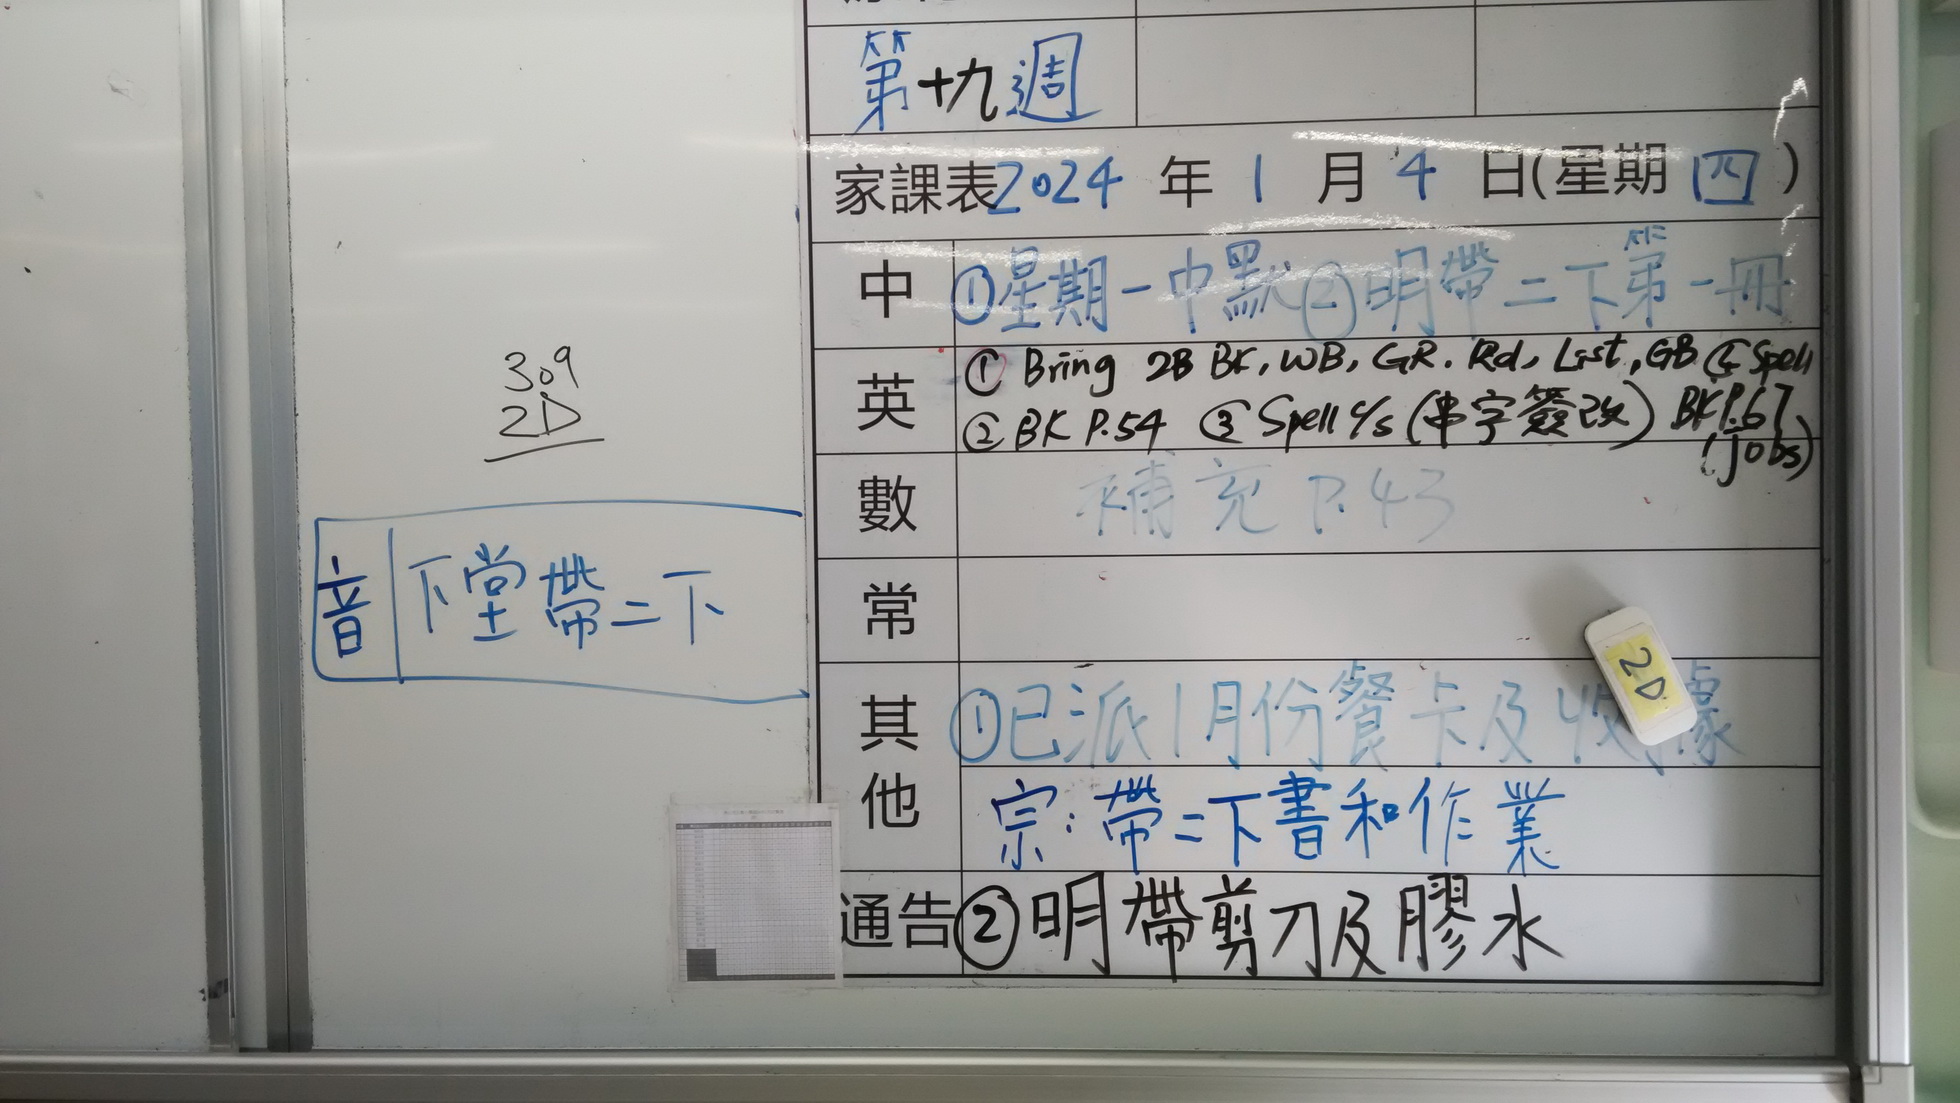 第十九週
家課表2024 年 1 月 4 日(星期 四)
中 ①星期一中默②明帶二下第一冊
英 ① Bring 2B BK, WB, GR. Rd, List, GB & Spell
② BK P.54 ③ Spell c/s (串字簽改) BK P.67
(jobs)
數 補充 P.43
常
其他 ①已派1月份餐卡及收據
宗:帶二下書和作業
通告 ②明帶剪刀及膠水
309
2D
音 下堂帶二下
2D